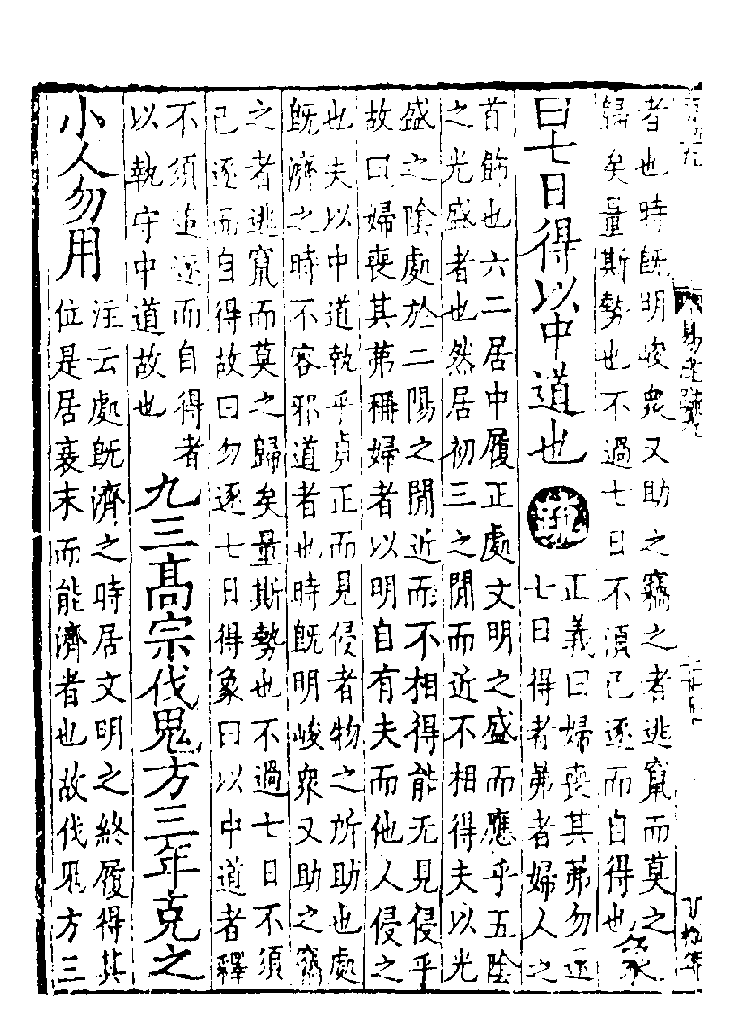 者也時既明峻衆又助之竊之者逃竄而莫之
歸矣量斯勢也不過七日不須己逐而自得也
象
曰七日得以中道也
疏
正義曰婦喪其茀勿逐
七日得者茀者婦人之
首飾也六二居中履正處文明之盛而應乎五陰
之光盛者也然居初三之閒而近不相得夫以光
盛之陰處於二陽之閒近而不相得能无見侵乎
故曰婦喪其茀稱婦者以明自有夫而他人侵之
也夫以中道執乎貞正而見侵者物之所助也處
既濟之時不容邪道者也時既明峻衆又助之竊
之者逃竄而莫之歸矣量斯勢也不過七日不須
己逐而自得故曰勿逐七日得象曰以中道者釋
不須追逐而自得者
以執守中道故也
九三髙宗伐鬼方三年克之
小人勿用
注云處既濟之時居文明之終履得其
位是居衰末而能濟者也故伐鬼方三